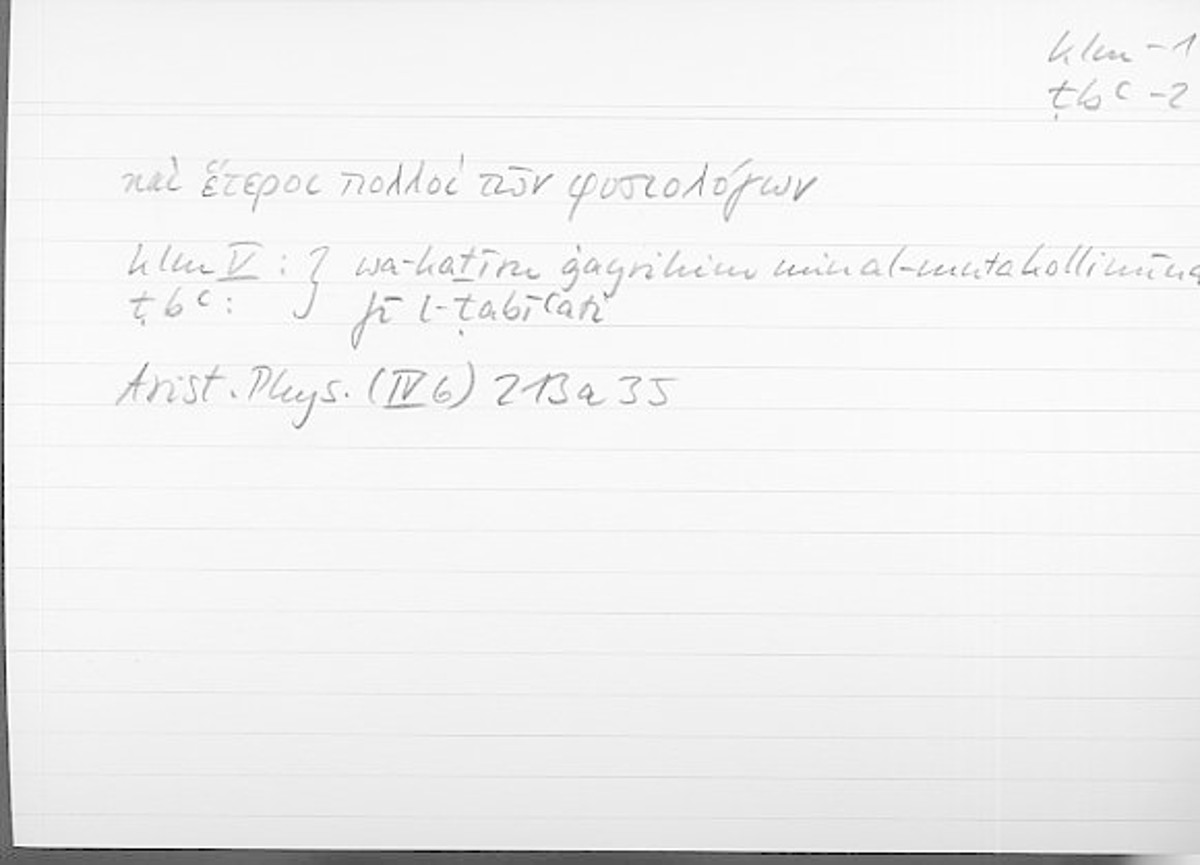 klm -1
ṭbʿ -2
καὶ ἕτεροι πολλοὶ τῶν φυσιολόγων
klm V : } wa-kaṯīrin ġayrihim min al-mutakallimīna
ṭbʿ : fī l-ṭabīʿati
Arist. Phys. (IV 6) 213 a 35